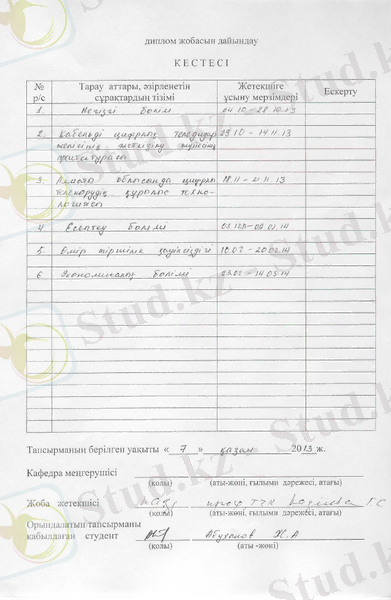 диплом жобасын дайындау
КЕСТЕСІ
№ р/с Тарау аттары, әзірленетін сұрақтардың тізімі Жетекшіге ұсыну мерзімдері Ескерту
1. Негізгі бөлім 04.10 - 28.10.13
2. Кабельді цифрлық теледидар 29.10 - 14.11.13
желісінің жетілдіру
архитектурасы
3. Алматы облысында цифрлы 18.11 - 21.11.13
телекөрудің құрылыс техно-
логиясы
4 Есептеу бөлімі
5. Өмір тіршілік қауіпсіздігі 10.02 - 20.02.14
6 Экономикалық бөлімі 03.02 - 14.03.14
Тапсырманың берілген уақыты « 7 » қазан 2013 ж.
Кафедра меңгерушісі
(қолы) (аты-жөні, ғылыми дәрежесі, атағы)
Жоба жетекшісі проф
(қолы) (аты-жөні, ғылыми дәрежесі, атағы)
Орындалатын тапсырманы
қабылдаған студент Абуханов Ж.А
(қолы) (аты -жөні)
Stud.kz